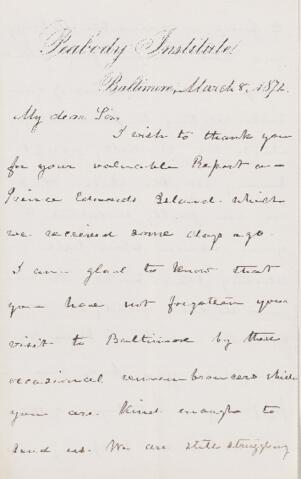 Peabody Institute
Baltimore, March 8, 1872.
My dear Sir
I wish to thank you
for your valuable Report on
Prince Edwards Island which
we received some days ago.
I am glad to know that
you have not forgotten your
visit to Baltimore by these
occasional remembrances which
you are kind enough to
send us. We are still struggling